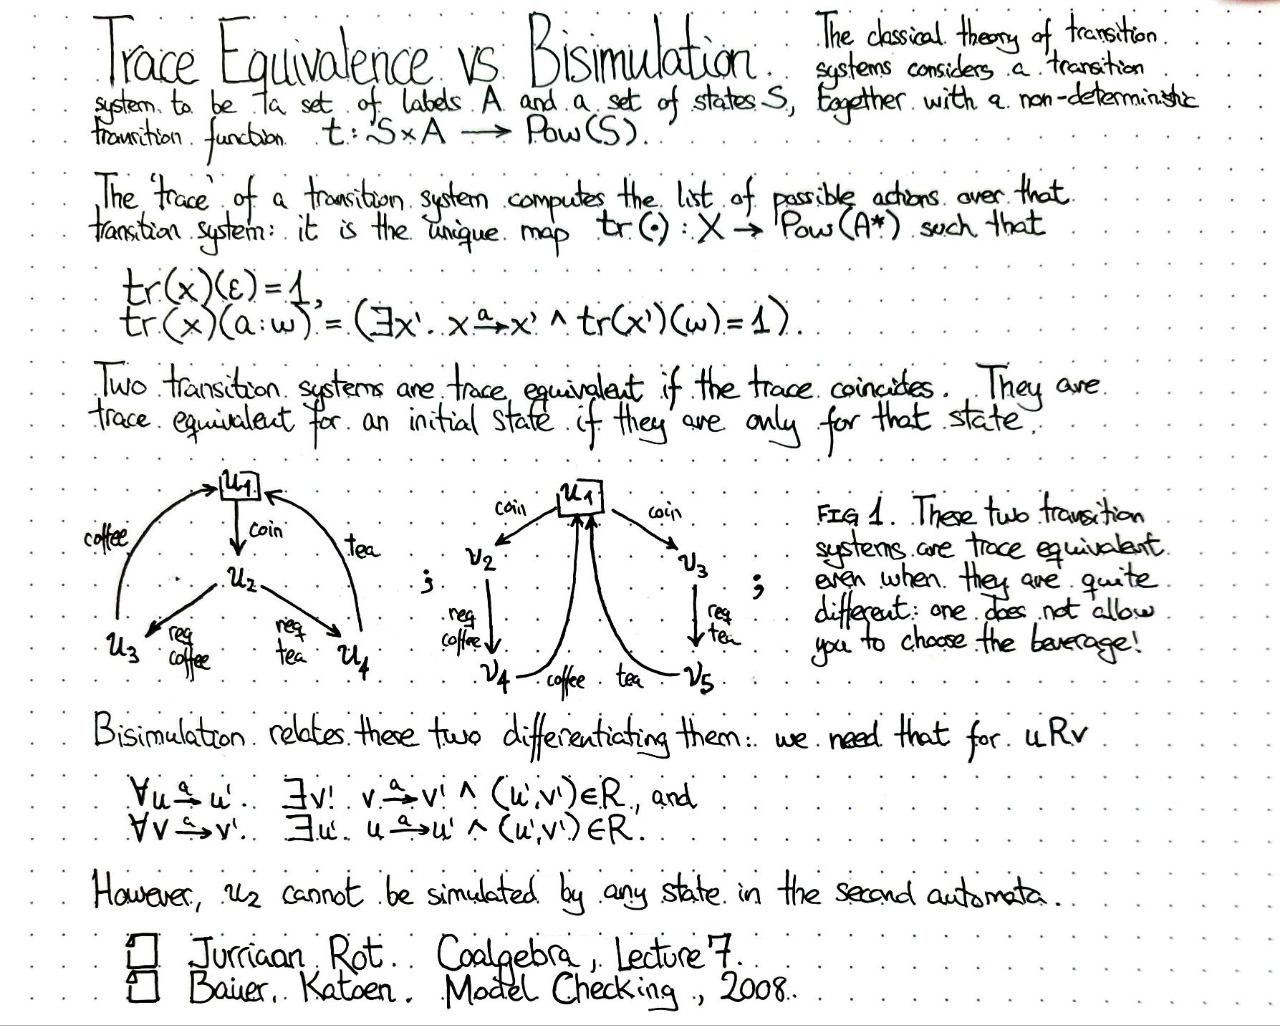 Trace Equivalence vs Bisimulation.
The classical theory of transition
systems considers a transition
system to be a set of labels A and a set of states S, together with a non-deterministic
transition function t: S×A → Pow(S).
The 'trace' of a transition system computes the list of possible actions over that
transition system: it is the unique map tr(·): X → Pow(A*) such that
tr(x)(ε)=1,
tr(x)(a:w) = (∃x'. x -a-> x' ∧ tr(x')(w)=1).
Two transition systems are trace equivalent if the trace coincides. They are
trace equivalent for an initial state if they are only for that state.
u1
coin
coffee
tea
u2
req coffee
req tea
u3
u4
;
u1
coin
coin
v2
v3
req coffee
req tea
v4
coffee
tea
v5
;
FIG 1. These two transition
systems are trace equivalent
even when they are quite
different: one does not allow
you to choose the beverage!
Bisimulation relates these two differentiating them: we need that for uRv
∀u -a-> u'. ∃v'. v -a-> v' ∧ (u',v')∈R, and
∀v -a-> v'. ∃u'. u -a-> u' ∧ (u',v')∈R.
However, u2 cannot be simulated by any state in the second automata.
Jurriaan Rot. Coalgebra, Lecture 7.
Baier, Katoen. Model Checking, 2008.